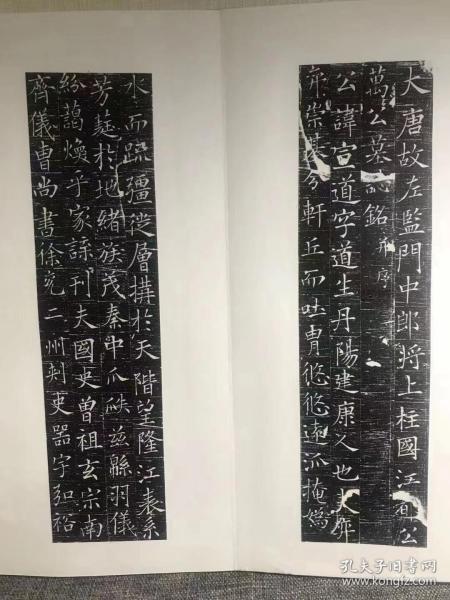 大唐故左監門中郎將上柱國江夏公
萬公墓誌銘并序
公諱宣道字道生丹陽建康人也夫
崇基分軒丘而吐胄悠悠遠派掩媯
水而疏彊從層搆於天階望隆江表系
芳蕤於地緒族茂秦中瓜瓞茲緜羽儀
紛藹煥乎家諜刊夫國史曾祖玄宗南
齊儀曹尚書徐兗二州刺史器宇弘裕
孔夫子旧书网
www.kongfz.com